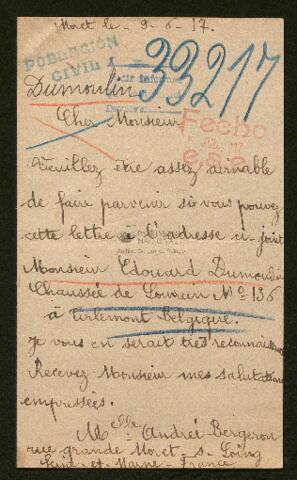 Moret le 9-6-17.
POBLACIÓN
CIVIL
33217
Dumoulin
Cher Monsieur
Fecho
Veuillez être assez aimable
de faire parvenir si vous pouvez
cette lettre à l'adresse ci joint
Monsieur Edouard Dumoulin
Chaussée de Louvain No 136
à Tirlemont Belgique.
Je vous en serait très reconnaissan
Recevez Monsieur mes salutations
empressées.
Melle André Bergeron
rue grande Moret-s-Loing
Seine-et-Marne-France